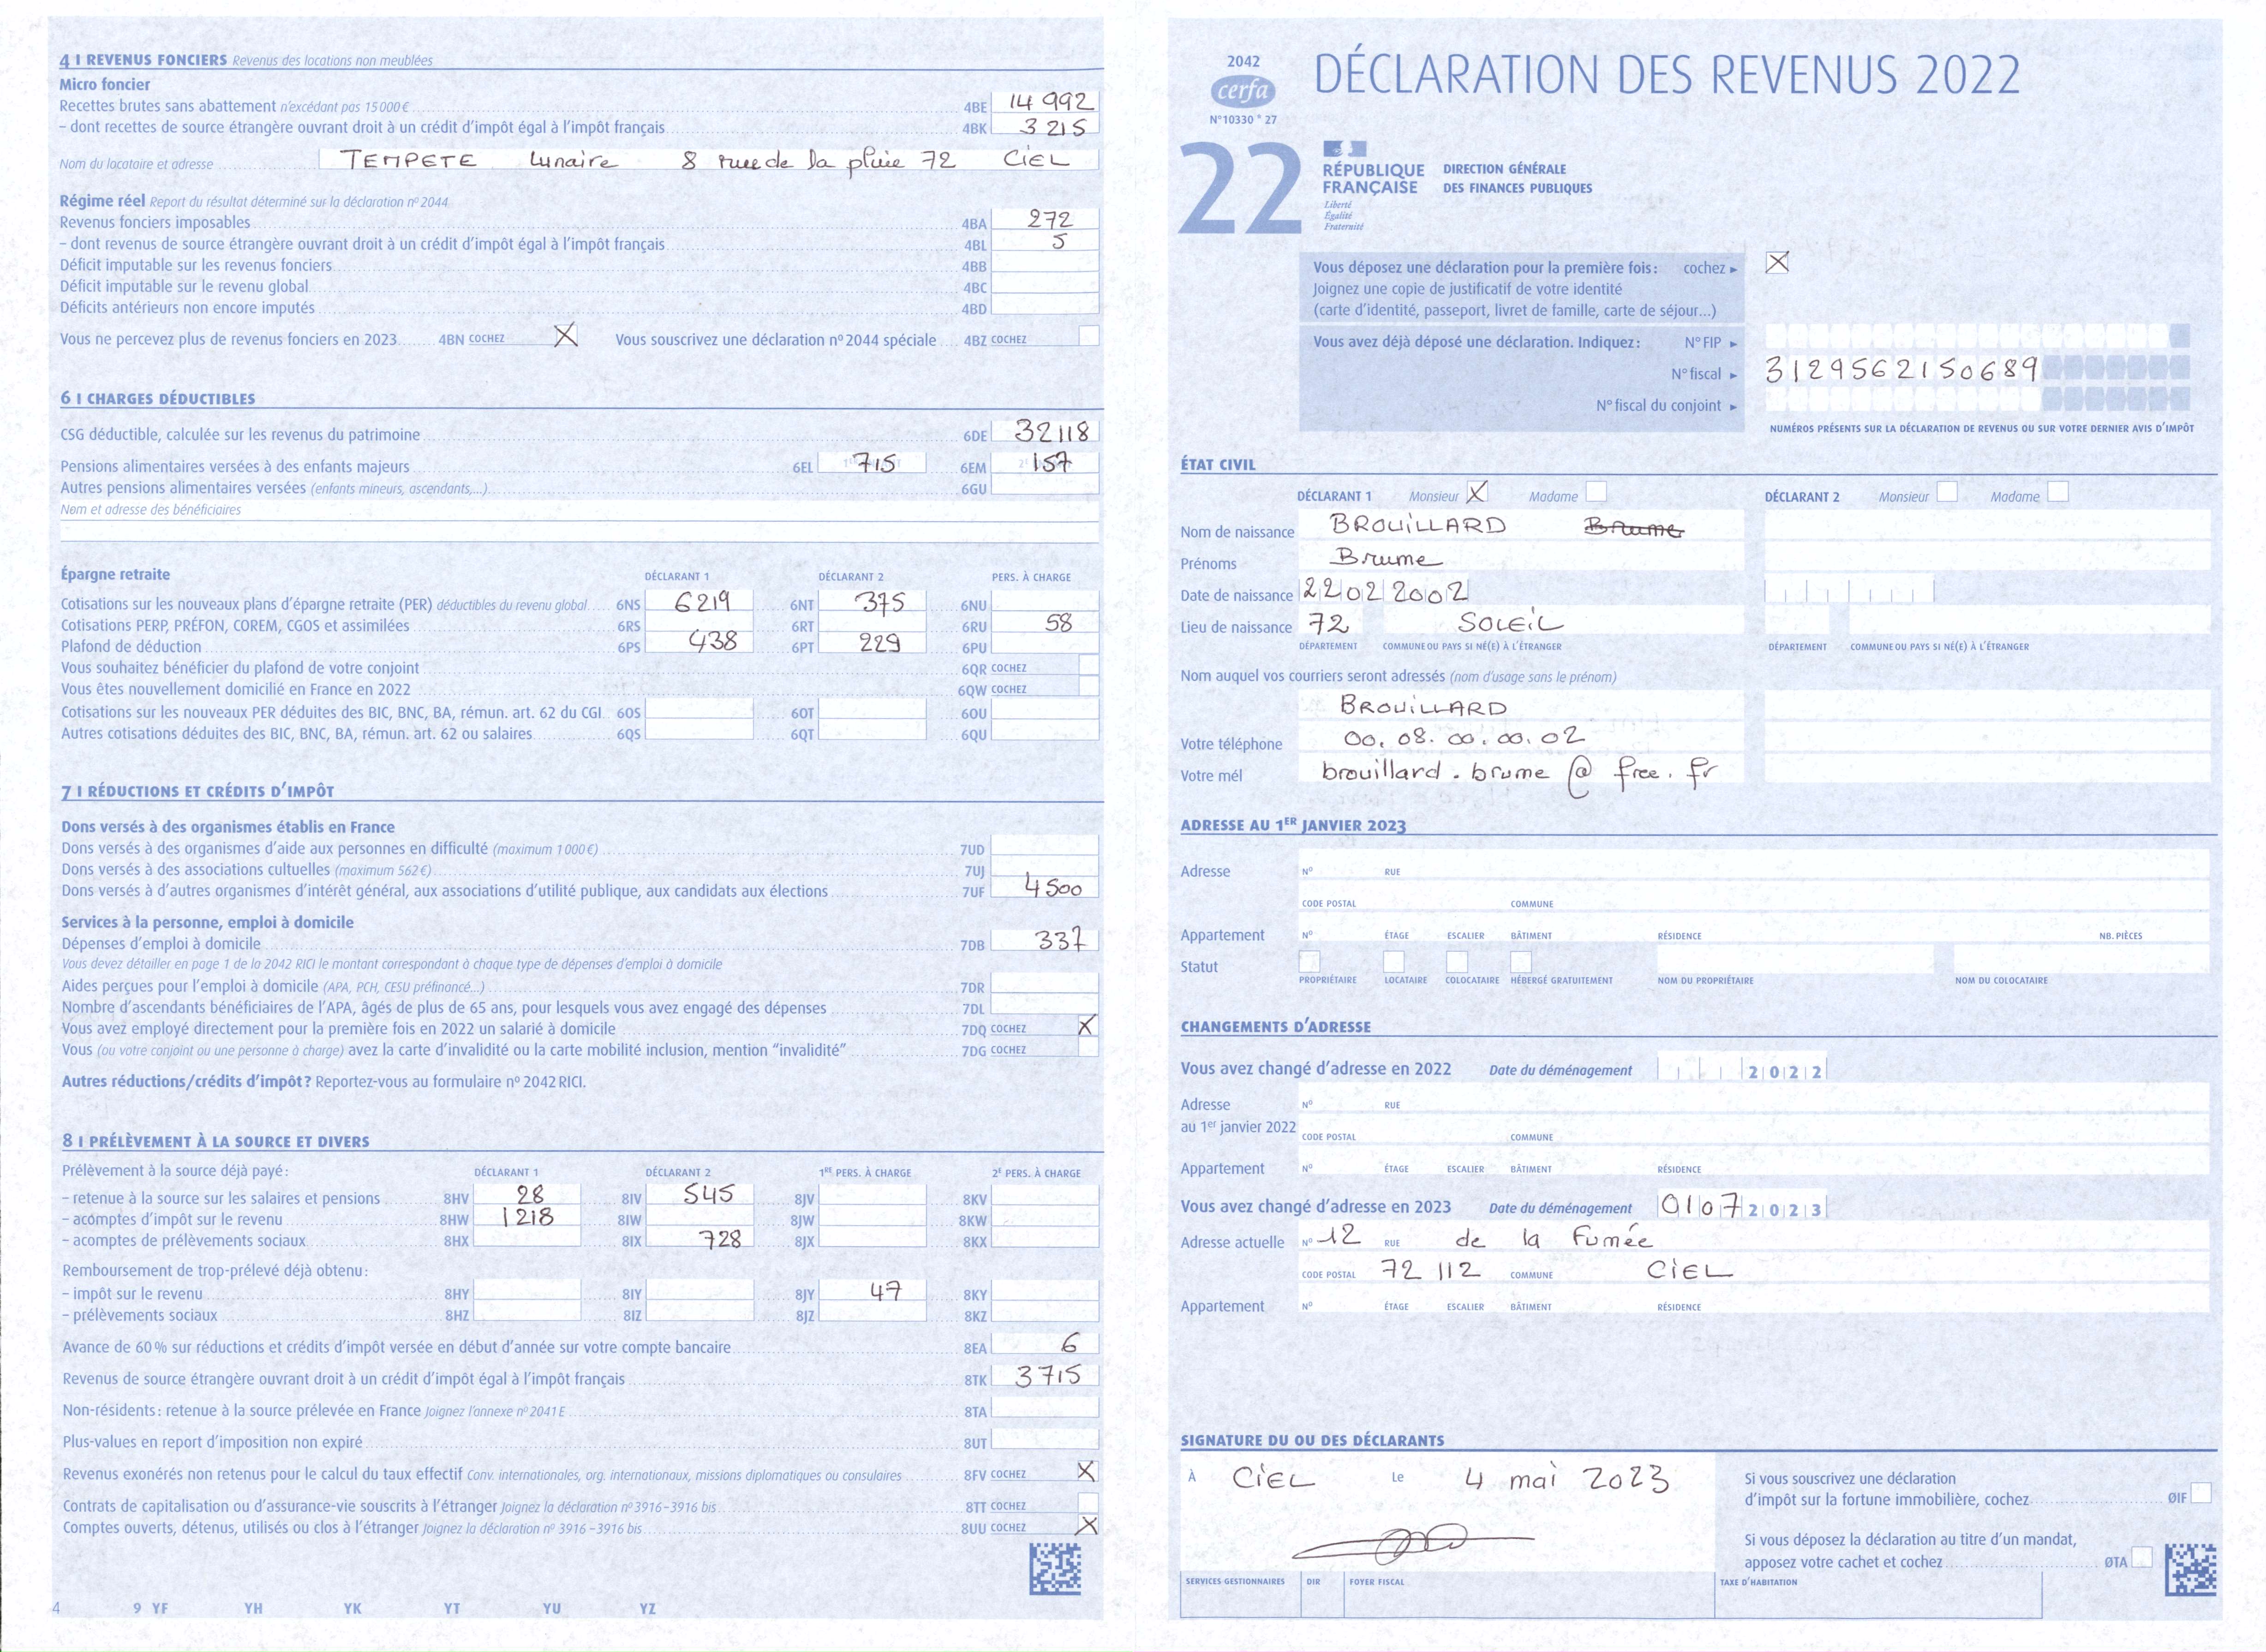 4 I REVENUS FONCIERS Revenus des locations non meublées
Micro foncier
Recettes brutes sans abattement n'excédant pas 15000 € 4BE 14 992
– dont recettes de source étrangère ouvrant droit à un crédit d'impôt égal à l'impôt français 4BK 3 215
Nom du locataire et adresse TEMPETE Lunaire 8 rue de la pluie 72 CIEL
Régime réel Report du résultat déterminé sur la déclaration nº 2044
Revenus fonciers imposables 4BA 272
– dont revenus de source étrangère ouvrant droit à un crédit d'impôt égal à l'impôt français 4BL 5
Déficit imputable sur les revenus fonciers 4BB
Déficit imputable sur le revenu global 4BC
Déficits antérieurs non encore imputés 4BD
Vous ne percevez plus de revenus fonciers en 2023 4BN COCHEZ X Vous souscrivez une déclaration nº 2044 spéciale 4BZ COCHEZ
6 I CHARGES DÉDUCTIBLES
CSG déductible, calculée sur les revenus du patrimoine 6DE 32118
Pensions alimentaires versées à des enfants majeurs 6EL 715 6EM 157
Autres pensions alimentaires versées (enfants mineurs, ascendants,...) 6GU
Nom et adresse des bénéficiaires
Épargne retraite DÉCLARANT 1 DÉCLARANT 2 PERS. À CHARGE
Cotisations sur les nouveaux plans d'épargne retraite (PER) déductibles du revenu global 6NS 6219 6NT 375 6NU
Cotisations PERP, PRÉFON, COREM, CGOS et assimilées 6RS 6RT 6RU 58
Plafond de déduction 6PS 438 6PT 229 6PU
Vous souhaitez bénéficier du plafond de votre conjoint 6QR COCHEZ
Vous êtes nouvellement domicilié en France en 2022 6QW COCHEZ
Cotisations sur les nouveaux PER déduites des BIC, BNC, BA, rémun. art. 62 du CGI 6OS 6OT 6OU
Autres cotisations déduites des BIC, BNC, BA, rémun. art. 62 ou salaires 6QS 6QT 6QU
7 I RÉDUCTIONS ET CRÉDITS D'IMPÔT
Dons versés à des organismes établis en France
Dons versés à des organismes d'aide aux personnes en difficulté (maximum 1 000 €) 7UD
Dons versés à des associations cultuelles (maximum 562 €) 7UJ
Dons versés à d'autres organismes d'intérêt général, aux associations d'utilité publique, aux candidats aux élections 7UF 4500
Services à la personne, emploi à domicile
Dépenses d'emploi à domicile 7DB 337
Vous devez détailler en page 1 de la 2042 RICI le montant correspondant à chaque type de dépenses d'emploi à domicile
Aides perçues pour l'emploi à domicile (APA, PCH, CESU préfinancé...) 7DR
Nombre d'ascendants bénéficiaires de l'APA, âgés de plus de 65 ans, pour lesquels vous avez engagé des dépenses 7DL
Vous avez employé directement pour la première fois en 2022 un salarié à domicile 7DQ COCHEZ X
Vous (ou votre conjoint ou une personne à charge) avez la carte d'invalidité ou la carte mobilité inclusion, mention "invalidité" 7DG COCHEZ
Autres réductions/crédits d'impôt? Reportez-vous au formulaire nº 2042 RICI.
8 I PRÉLÈVEMENT À LA SOURCE ET DIVERS
Prélèvement à la source déjà payé: DÉCLARANT 1 DÉCLARANT 2 1RE PERS. À CHARGE 2E PERS. À CHARGE
– retenue à la source sur les salaires et pensions 8HV 28 8IV 545 8JV 8KV
– acomptes d'impôt sur le revenu 8HW 1218 8IW 8JW 8KW
– acomptes de prélèvements sociaux 8HX 8IX 728 8JX 8KX
Remboursement de trop-prélevé déjà obtenu:
– impôt sur le revenu 8HY 8IY 8JY 47 8KY
– prélèvements sociaux 8HZ 8IZ 8JZ 8KZ
Avance de 60 % sur réductions et crédits d'impôt versée en début d'année sur votre compte bancaire 8EA 6
Revenus de source étrangère ouvrant droit à un crédit d'impôt égal à l'impôt français 8TK 3715
Non-résidents: retenue à la source prélevée en France Joignez l'annexe nº 2041 E 8TA
Plus-values en report d'imposition non expiré 8UT
Revenus exonérés non retenus pour le calcul du taux effectif Conv. internationales, org. internationaux, missions diplomatiques ou consulaires 8FV COCHEZ X
Contrats de capitalisation ou d'assurance-vie souscrits à l'étranger Joignez la déclaration nº 3916–3916 bis 8TT COCHEZ
Comptes ouverts, détenus, utilisés ou clos à l'étranger Joignez la déclaration nº 3916 –3916 bis 8UU COCHEZ X
4 9 YF YH YK YT YU YZ
2042
cerfa
N° 10330 * 27
DÉCLARATION DES REVENUS 2022
22
RÉPUBLIQUE
FRANÇAISE
Liberté
Égalité
Fraternité
DIRECTION GÉNÉRALE
DES FINANCES PUBLIQUES
Vous déposez une déclaration pour la première fois: cochez ► X
Joignez une copie de justificatif de votre identité
(carte d'identité, passeport, livret de famille, carte de séjour...)
Vous avez déjà déposé une déclaration. Indiquez: N° FIP ►
N° fiscal ► 3129562150689
N° fiscal du conjoint ►
NUMÉROS PRÉSENTS SUR LA DÉCLARATION DE REVENUS OU SUR VOTRE DERNIER AVIS D'IMPÔT
ÉTAT CIVIL
DÉCLARANT 1 Monsieur X Madame DÉCLARANT 2 Monsieur Madame
Nom de naissance BROUILLARD Brume
Prénoms Brume
Date de naissance 22022002
Lieu de naissance 72 SOLEIL
DÉPARTEMENT COMMUNE OU PAYS SI NÉ(E) À L'ÉTRANGER DÉPARTEMENT COMMUNE OU PAYS SI NÉ(E) À L'ÉTRANGER
Nom auquel vos courriers seront adressés (nom d'usage sans le prénom)
BROUILLARD
Votre téléphone 00. 08. 00. 00. 02
Votre mél brouillard.brume@free.fr
ADRESSE AU 1ER JANVIER 2023
Adresse N° RUE
CODE POSTAL COMMUNE
Appartement N° ÉTAGE ESCALIER BÂTIMENT RÉSIDENCE NB. PIÈCES
Statut
PROPRIÉTAIRE LOCATAIRE COLOCATAIRE HÉBERGÉ GRATUITEMENT NOM DU PROPRIÉTAIRE NOM DU COLOCATAIRE
CHANGEMENTS D'ADRESSE
Vous avez changé d'adresse en 2022 Date du déménagement 2022
Adresse N° RUE
au 1er janvier 2022 CODE POSTAL COMMUNE
Appartement N° ÉTAGE ESCALIER BÂTIMENT RÉSIDENCE
Vous avez changé d'adresse en 2023 Date du déménagement 01072023
Adresse actuelle N° 12 RUE de la Fumée
CODE POSTAL 72 112 COMMUNE CIEL
Appartement N° ÉTAGE ESCALIER BÂTIMENT RÉSIDENCE
SIGNATURE DU OU DES DÉCLARANTS
À CIEL Le 4 mai 2023
Si vous souscrivez une déclaration
d'impôt sur la fortune immobilière, cochez ØIF
Si vous déposez la déclaration au titre d'un mandat,
apposez votre cachet et cochez ØTA
SERVICES GESTIONNAIRES DIR FOYER FISCAL TAXE D'HABITATION